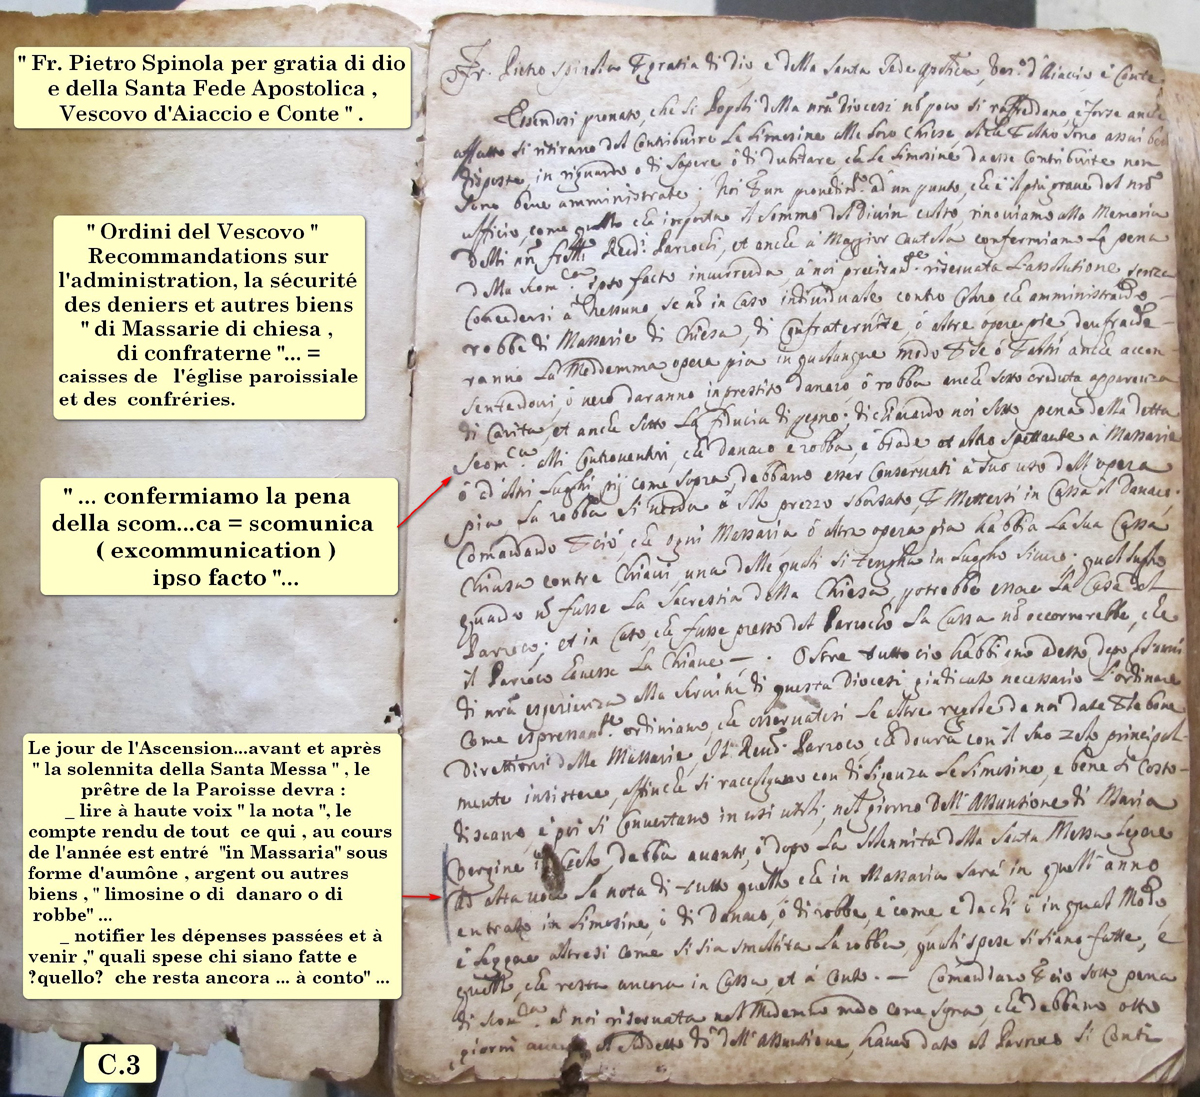 " Fr. Pietro Spinola per gratia di dio
e della Santa Fede Apostolica ,
Vescovo d'Aiaccio e Conte " .
" Ordini del Vescovo "
Recommandations sur
l'administration, la sécurité
des deniers et autres biens
" di Massarie di chiesa ,
di confraterne "... =
caisses de l'église paroissiale
et des confréries.
" ... confermiamo la pena
della scom...ca = scomunica
( excommunication )
ipso facto "...
Le jour de l'Ascension...avant et après
" la solennita della Santa Messa " , le
prêtre de la Paroisse devra :
_ lire à haute voix " la nota ", le
compte rendu de tout ce qui , au cours
de l'année est entré "in Massaria" sous
forme d'aumône , argent ou autres
biens , " limosine o di danaro o di
robbe" ...
_ notifier les dépenses passées et à
venir ," quali spese chi siano fatte e
?quello? che resta ancora ... à conto" ...
C.3
Fr. Pietro Spinola gratia di dio e della Santa Fede d'Aiaccio e Conte
Essendosi che li Popoli della diocesi poco si raffreddano e forse anche
affatto si ritirano dal Contribuire le limosine alle loro Chiese
disposte, in riguardo o di sapere ò di dubitare che le limosine da esse Contribuite non
siano bene amministrate; Noi un ad un punto, che è il più grave del
ufficio, come quello che importa il sommo del Divin culto, rinoviamo alla Memoria
Parrochi, et anche à Maggior Cautela confermiamo la pena
della scom.ca ipso facto incurrenda à noi riservata L'assolutione senza
Concedersi à Nessuno se in Caso individuale contro che amministrando
robbe di Massarie di Chiesa, di Confraternite, ò altre opere pie
ranno La Meddemma opera pia in qualunque modo se ò anche accon-
sentendovi, ò vero daranno in prestito danaro ò robba anche sotto creduta apparenza
di Carita, et anche sotto La fiducia di pegno; dichiarando noi sotto pena della detta
Scom.ca che danaro e robba, e biade et altro spettante à Massarie
ò ad altri Luoghi pij come sopra, debbano esser Conservati à suo uso dell'opera
pia La robba si venda ò prezzo sborsato, Mettersi in Cassa il Danaro.
Comandando ciò, che ogni Massaria ò altra opera pia habbia La sua Cassa
Chiusa con tre Chiavi, una delle quali si tengha in Luogho sicuro;
quando fusse La Sacrestia della Chiesa, potrebbe essere La Casa del
Parroco; et in Caso, che fusse presso del Parrocho La Cassa occorrerebbe, che
il Parroco tenesse La Chiave — . Oltre tutto cio habbiamo adesso dopo
di esperienza alla di questa Diocesi giudicato necessario L'ordinare
Come ordiniamo, che osservatesi Le altre regole da noi date bone
Direttioni delle Massarie, Il Parroco, che dovra con il suo zelo principal-
mente insistere, affinche si raccolgano con diligenza Le limosine, e bene si Custo-
discano, e poi si Convertano in usi utili, nel giorno dell'Assuntione di Maria
Vergine in Cielo, debba avanti, ò dopo La solennita della Santa Messa Legere
ad alta voce La nota di tutto quello che in Massaria sarà in quell'anno
entrato in limosine, ò di danaro, ò di robbe, e come e da chi ò in qual Modo,
e leggere altresi come si sia smaltita La robba, quali spese si siano fatte, e
quello, che resta ancora in Cassa, et à Conto. — Comandando cio sotto pena
di scom.ca à noi riservata nel Medemmo modo come sopra, che debbano otto
giorni il dell'Assuntione, dato il Parroco